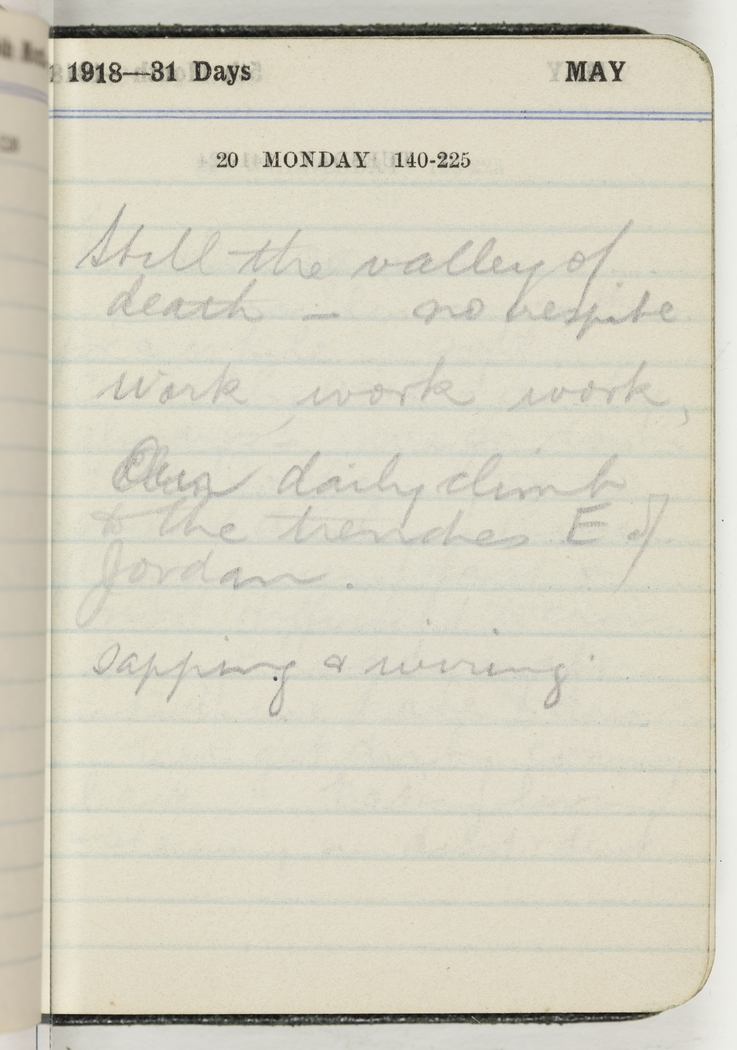 1918—31 Days MAY
20 MONDAY 140-225
Still the valley of
death — no respite
work, work, work,
Our daily climb
to the trenches E of
Jordan.
sapping & wiring.